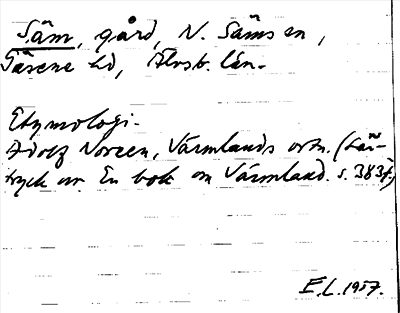 Säm, gård, N. Säms sn,
Gäsene hd, Älvsb. län.
Etymologi.
Adolf Noreen, Värmlands ortn. (Sär-
tryck ur En bok om Värmland. s. 383f.)
E.L. 1957.